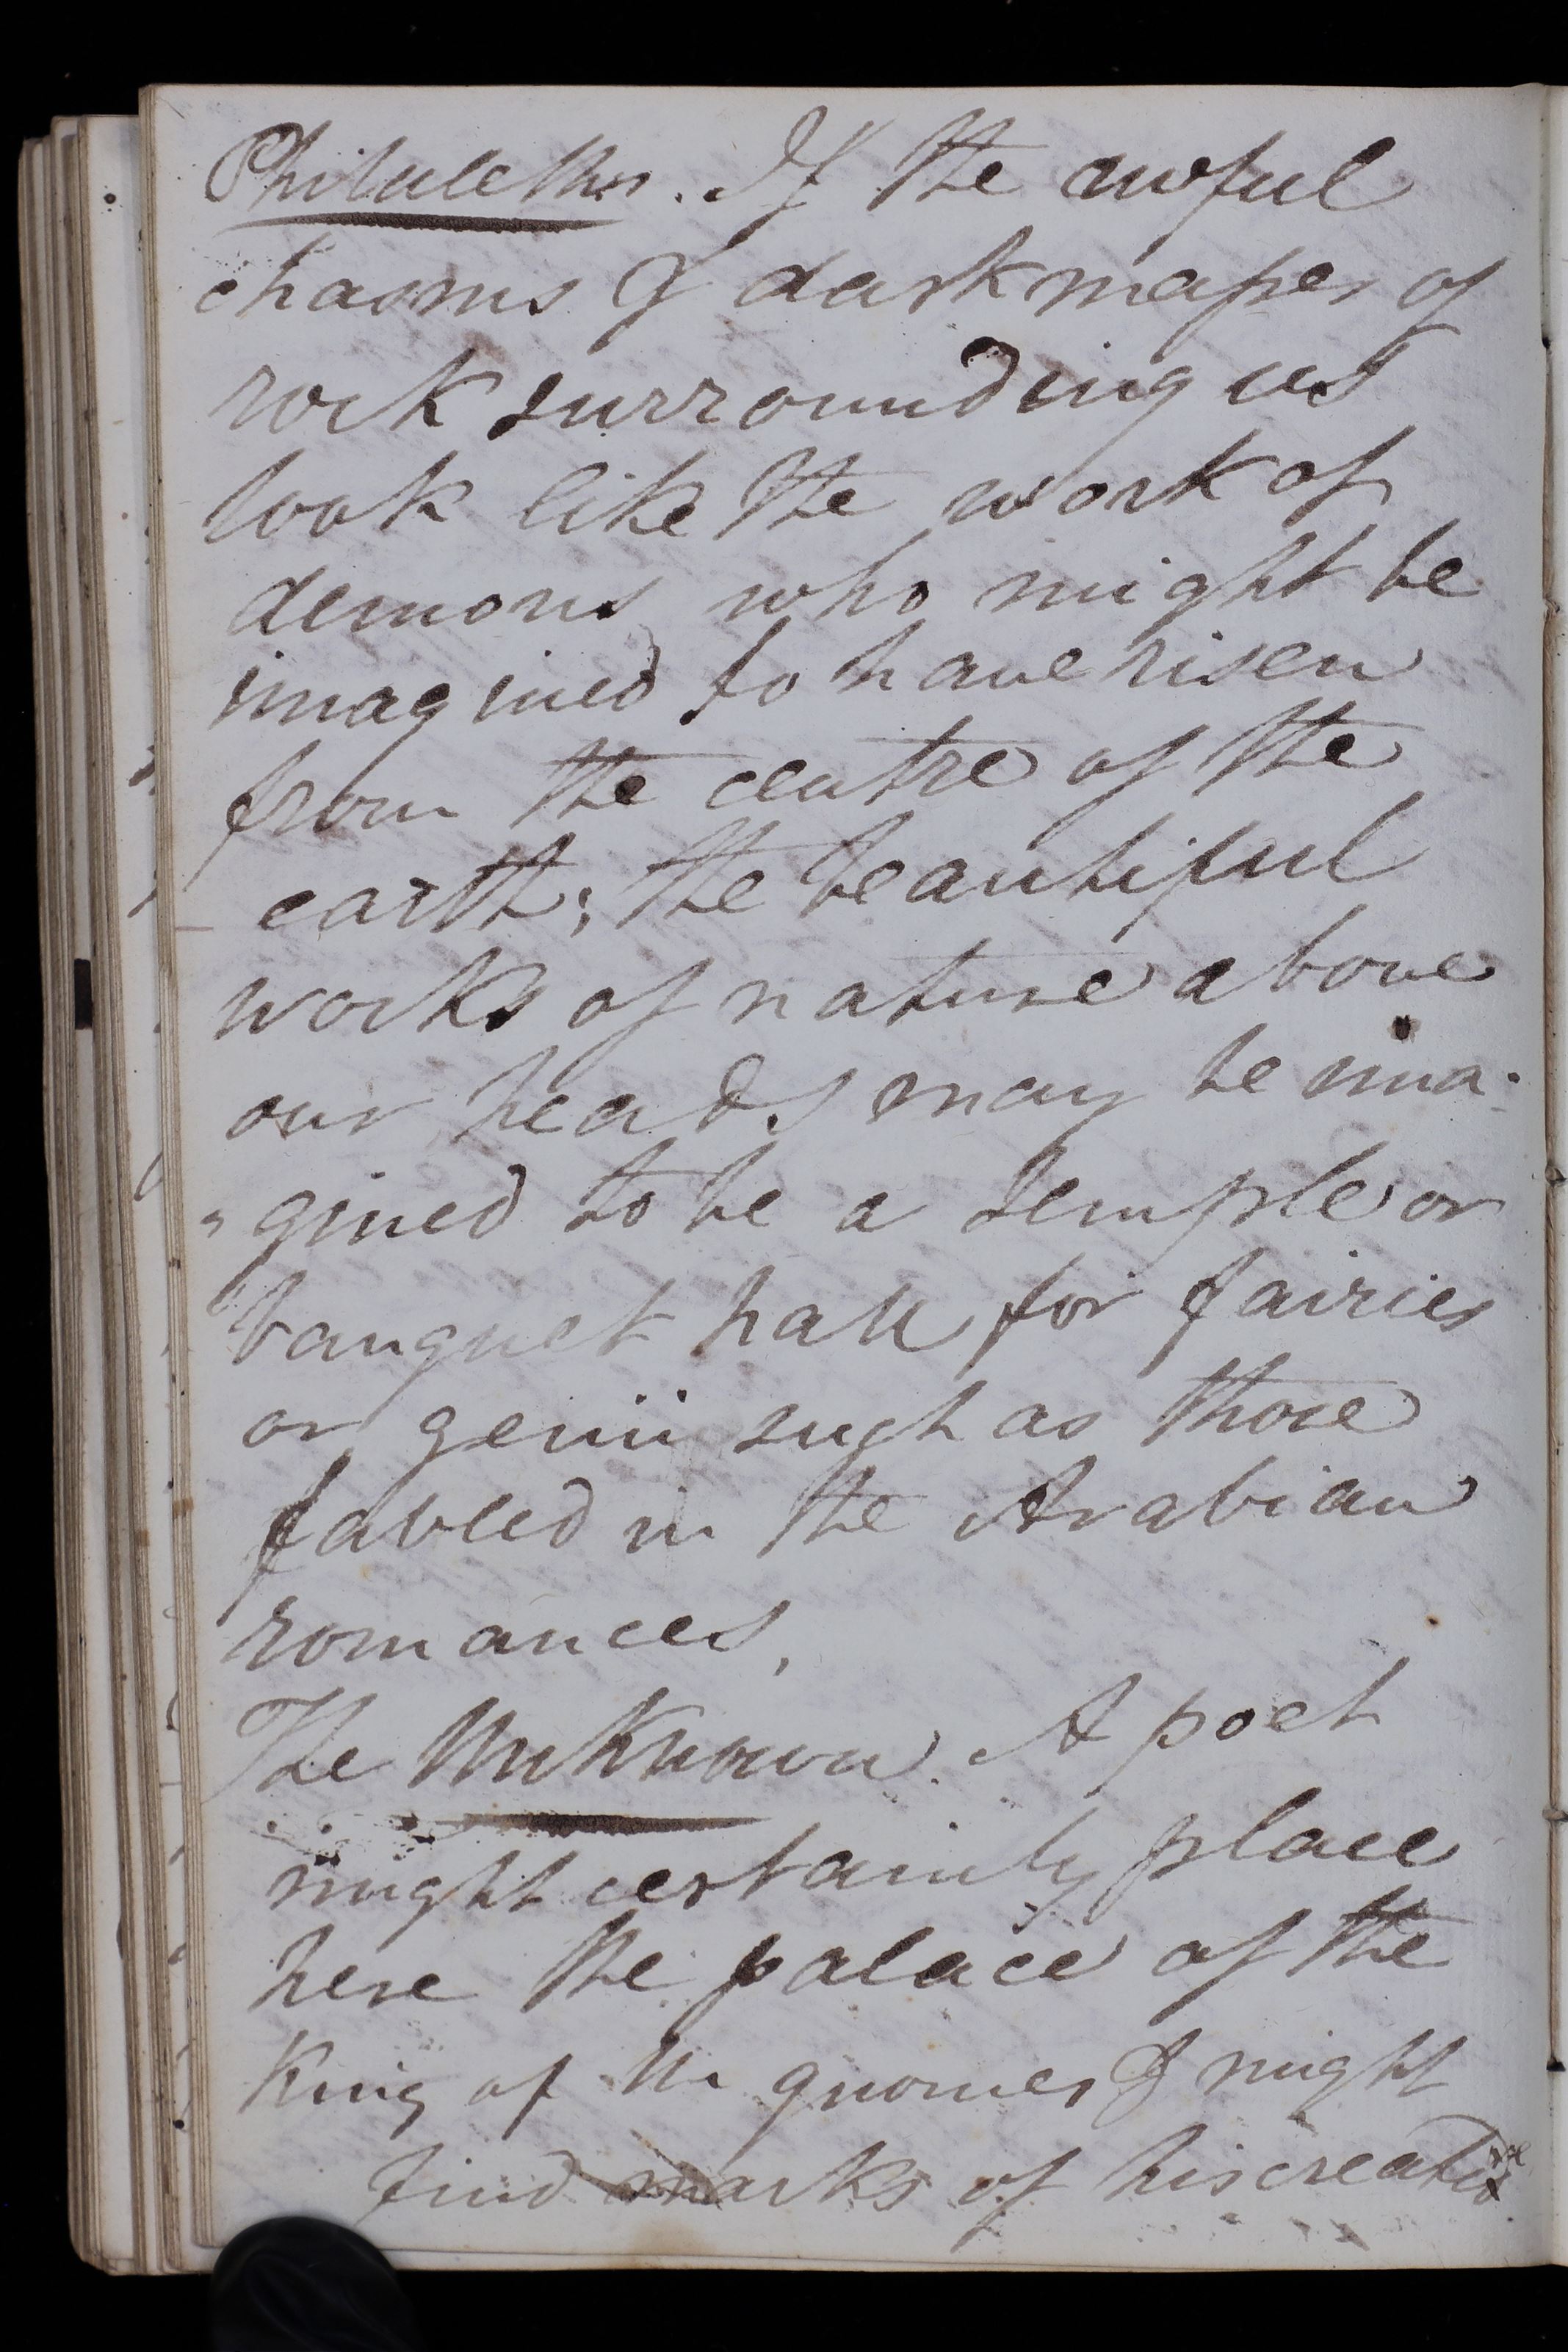 Philalethes. If the awful
chasms & dark masses of
rock surrounding us
look like the work of
demons who might be
imagined to have risen
from the centre of the
earth; the beautiful
works of nature above
our heads may be ima-
-gined to be a temple or
banquet hall for fairies
or genii such as those
fabled in the Arabian
romances.
The Unknown. A poet
might certainly place
here the palace of the
King of the gnomes & might
find marks of his creative